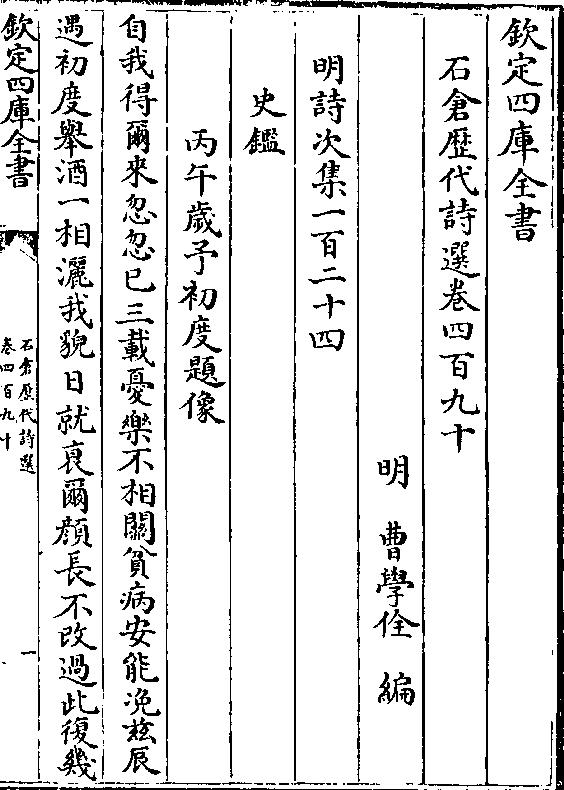 欽定四庫全書
石倉歷代詩選卷四百九十
明 曹學佺 編
明詩次集一百二十四
史鑑
丙午歲予初度題像
自我得爾來忽忽已三載憂樂不相關貧病安能浼兹辰
遇初度舉酒一相灑我貌日就衰爾顔長不改過此復幾
欽定四庫全書
石倉歷代詩選
卷四百九十
一